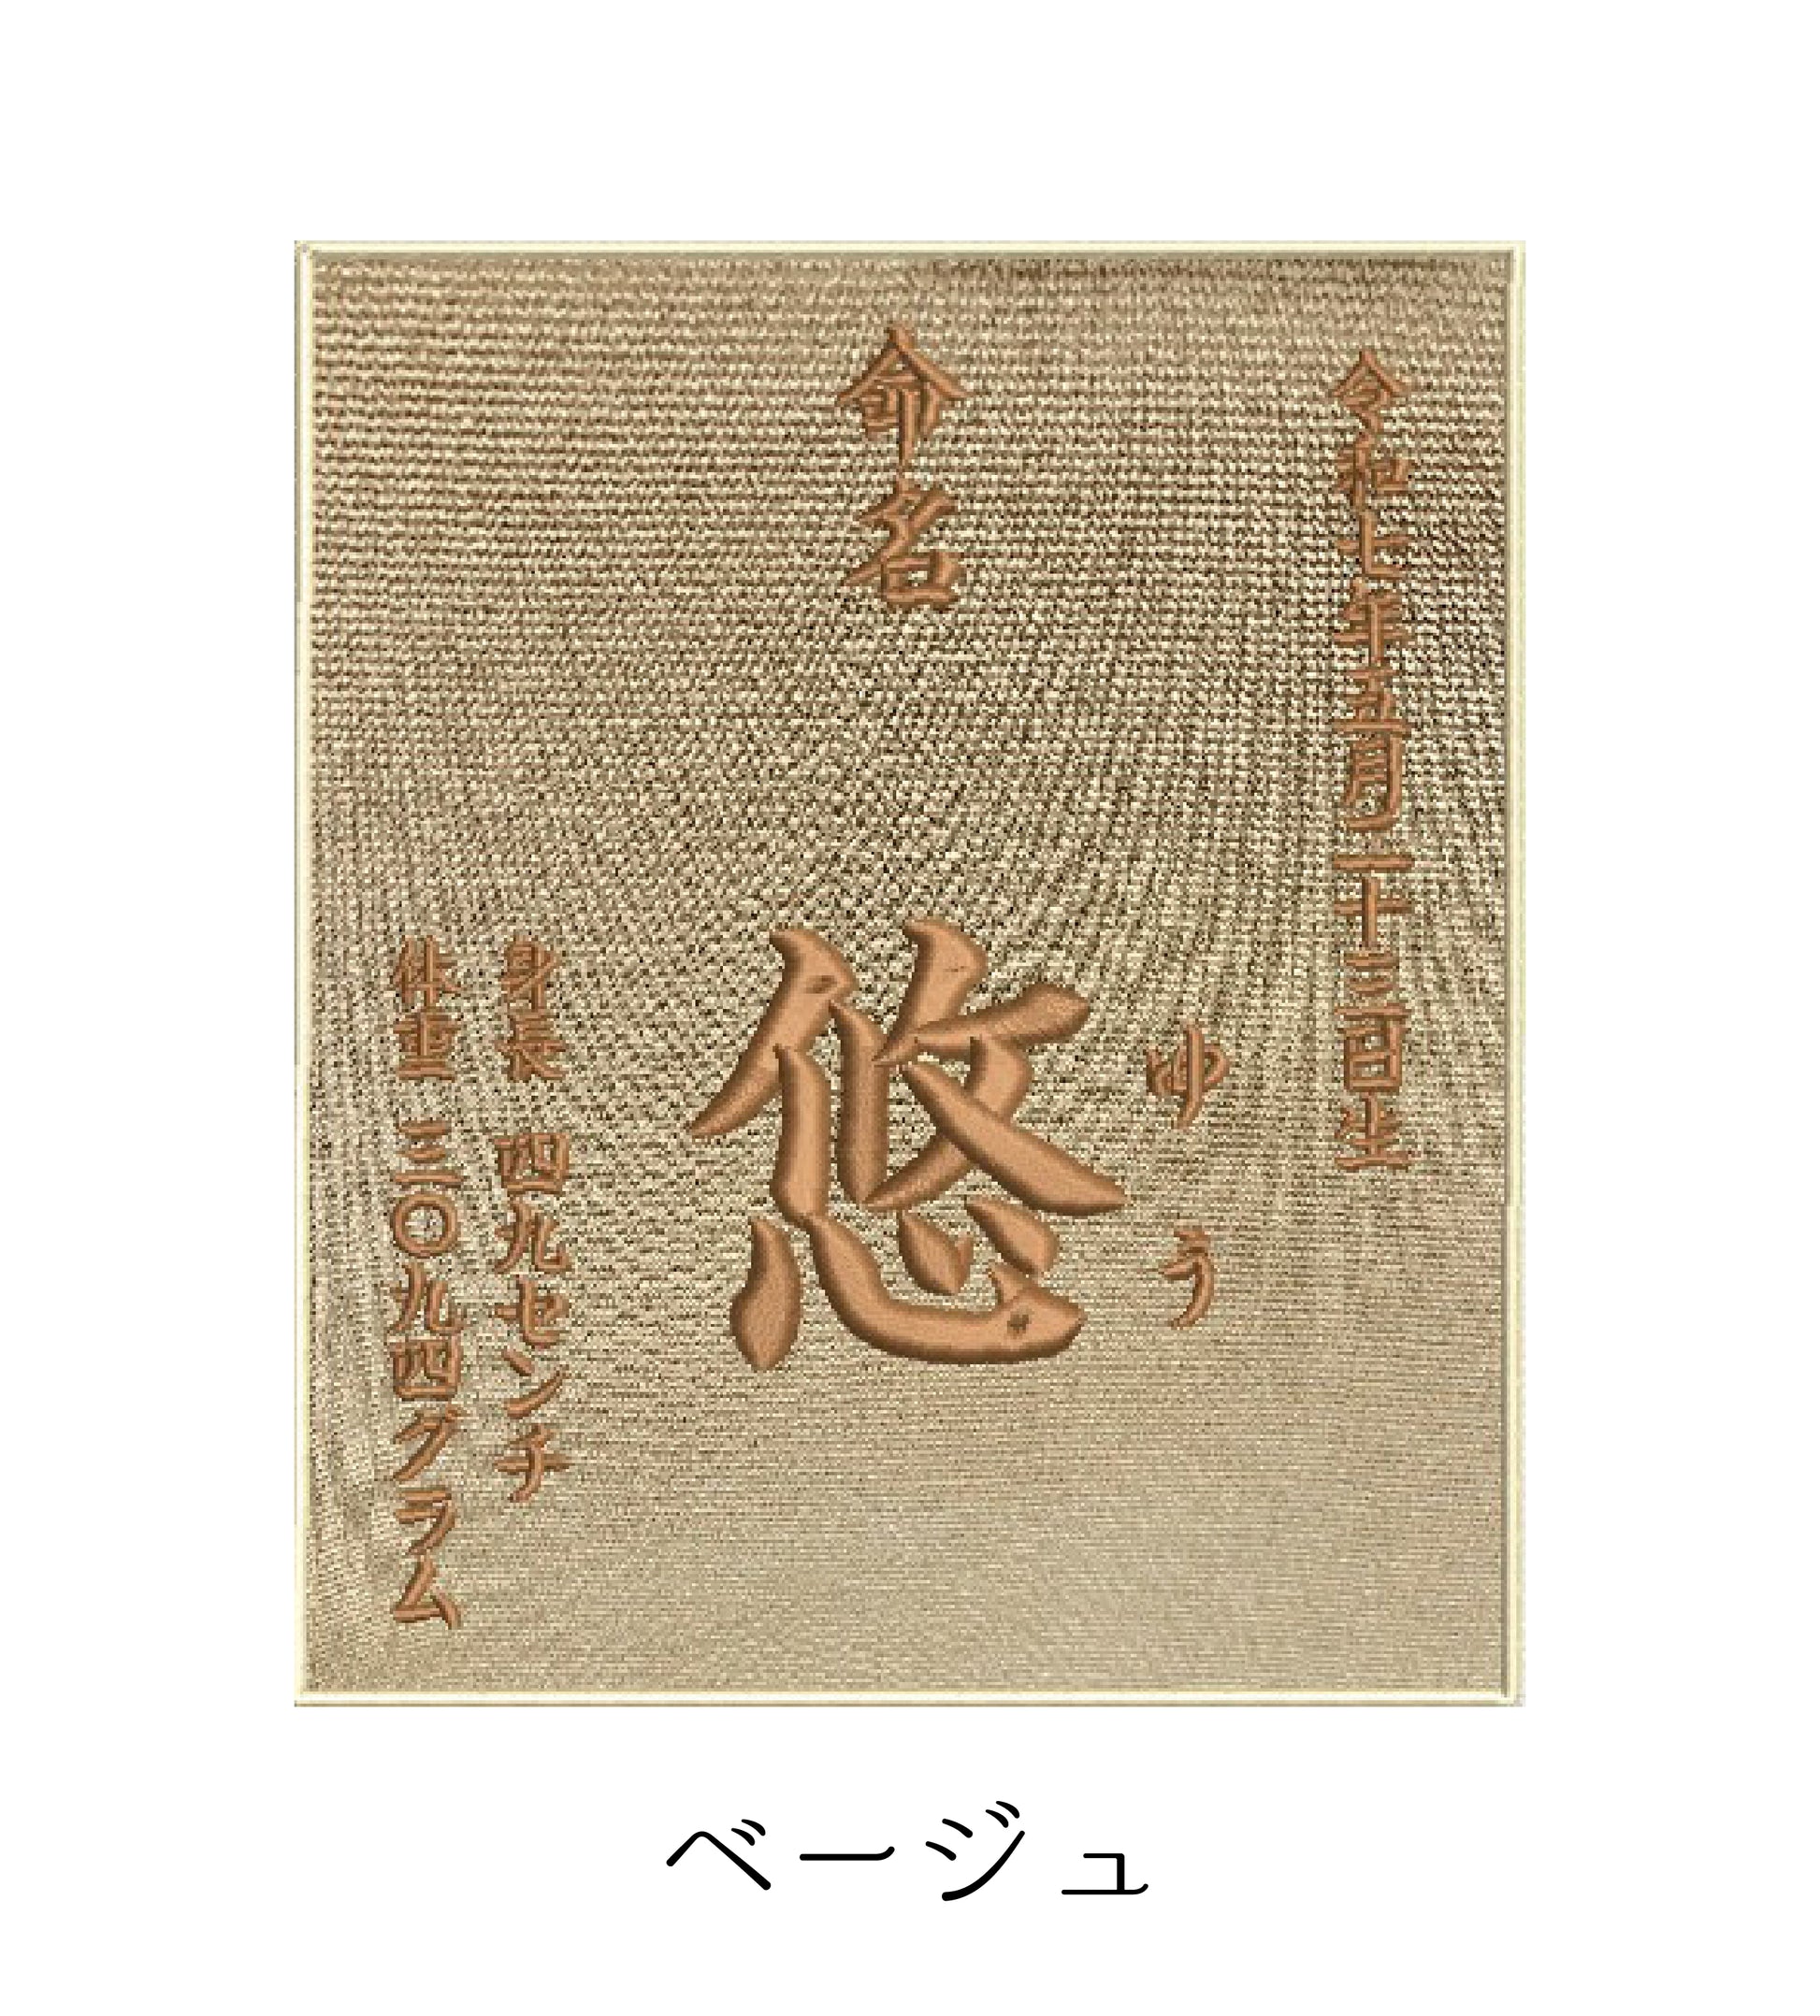 令和七年五月二十三日生
命名
悠
ゆう
身長 四九センチ
体重 三〇九四グラム
ベージュ